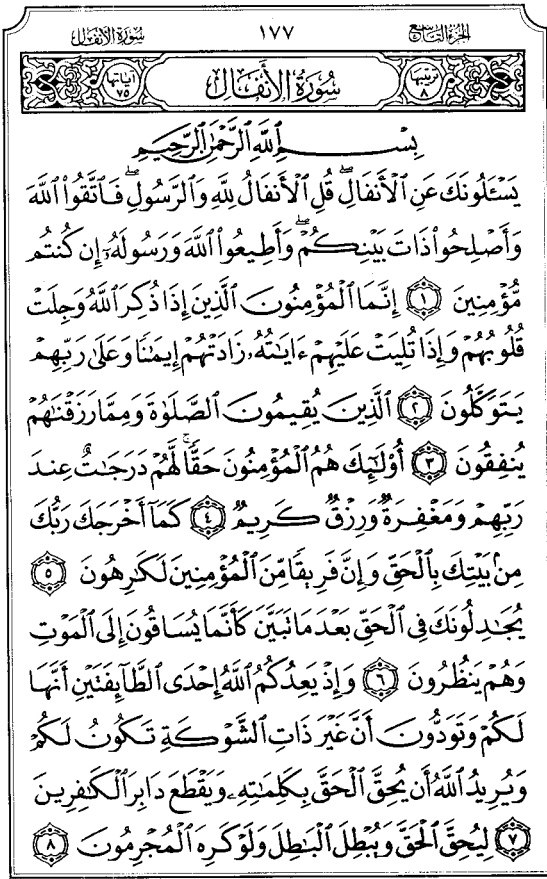 سورة الأنفال ١٧٧ الجزء التاسع
ترتيبها ٨ سُورَةُ الأَنْفَالِ آياتها ٧٥
بِسْمِ اللَّهِ الرَّحْمَٰنِ الرَّحِيمِ
يَسْـَٔلُونَكَ عَنِ ٱلْأَنفَالِۖ قُلِ ٱلْأَنفَالُ لِلَّهِ وَٱلرَّسُولِۖ فَٱتَّقُوا۟ ٱللَّهَ
وَأَصْلِحُوا۟ ذَاتَ بَيْنِكُمْۖ وَأَطِيعُوا۟ ٱللَّهَ وَرَسُولَهُۥٓ إِن كُنتُم
مُّؤْمِنِينَ ١ إِنَّمَا ٱلْمُؤْمِنُونَ ٱلَّذِينَ إِذَا ذُكِرَ ٱللَّهُ وَجِلَتْ
قُلُوبُهُمْ وَإِذَا تُلِيَتْ عَلَيْهِمْ ءَايَٰتُهُۥ زَادَتْهُمْ إِيمَٰنًا وَعَلَىٰ رَبِّهِمْ
يَتَوَكَّلُونَ ٢ ٱلَّذِينَ يُقِيمُونَ ٱلصَّلَوٰةَ وَمِمَّا رَزَقْنَٰهُمْ
يُنفِقُونَ ٣ أُو۟لَٰٓئِكَ هُمُ ٱلْمُؤْمِنُونَ حَقًّاۚ لَّهُمْ دَرَجَٰتٌ عِندَ
رَبِّهِمْ وَمَغْفِرَةٌ وَرِزْقٌ كَرِيمٌ ٤ كَمَآ أَخْرَجَكَ رَبُّكَ
مِنۢ بَيْتِكَ بِٱلْحَقِّ وَإِنَّ فَرِيقًا مِّنَ ٱلْمُؤْمِنِينَ لَكَٰرِهُونَ ٥
يُجَٰدِلُونَكَ فِى ٱلْحَقِّ بَعْدَ مَا تَبَيَّنَ كَأَنَّمَا يُسَاقُونَ إِلَى ٱلْمَوْتِ
وَهُمْ يَنظُرُونَ ٦ وَإِذْ يَعِدُكُمُ ٱللَّهُ إِحْدَى ٱلطَّآئِفَتَيْنِ أَنَّهَا
لَكُمْ وَتَوَدُّونَ أَنَّ غَيْرَ ذَاتِ ٱلشَّوْكَةِ تَكُونُ لَكُمْ
وَيُرِيدُ ٱللَّهُ أَن يُحِقَّ ٱلْحَقَّ بِكَلِمَٰتِهِۦ وَيَقْطَعَ دَابِرَ ٱلْكَٰفِرِينَ
٧ لِيُحِقَّ ٱلْحَقَّ وَيُبْطِلَ ٱلْبَٰطِلَ وَلَوْ كَرِهَ ٱلْمُجْرِمُونَ ٨